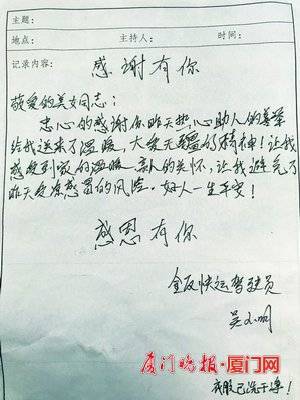 主题:
地点: 主持人: 时间:
记录内容: 感谢有你
敬爱的美女同志:
忠心的感谢你昨天热心助人的善举
给我送来了温暖,大爱无疆的精神!让我
感受到家的温暖亲人的关怀,让我避免了
昨天受凉感冒的风险。好人一生平安!
感恩有你
全反快运驾驶员
吴小明
厦门晚报·厦门网
衣服已洗干净!